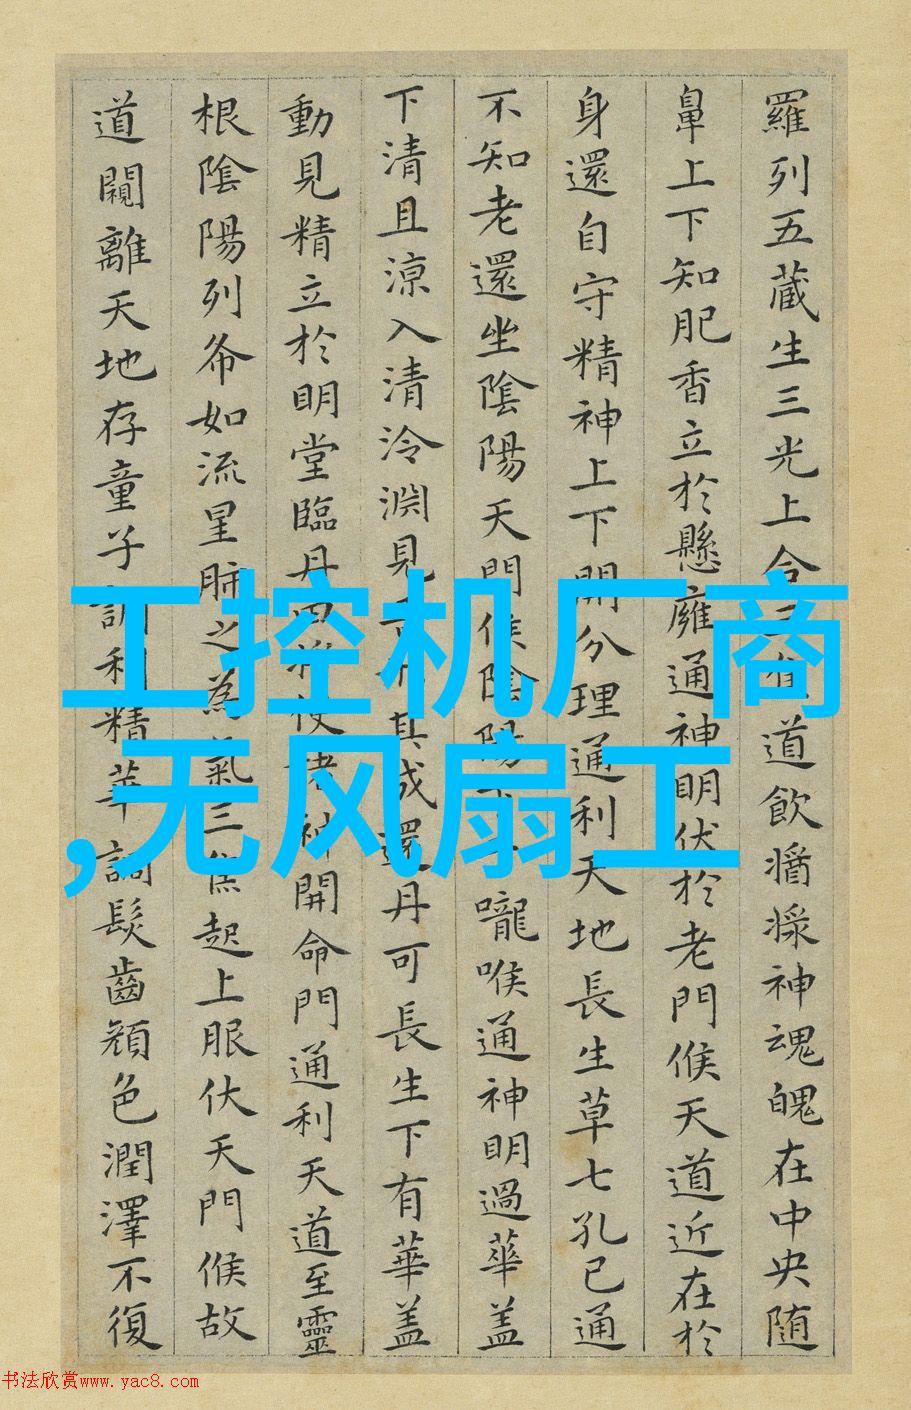 羅列五藏生三光上合三焦道飲醬漿神魂魄在中央随
鼻上下知肥香立於懸廱通神明伏於老門候天道近在於
身還自守精神上下開分理通利天地長生草七孔已通
不知老還坐陰陽天門候陰陽下嚨喉通神明過華盖
下清且涼入清泠淵見吾形其成還丹可長生下有華盖
動見精立於明堂臨丹田將使諸神開命門通利天道至靈
根陰陽列布如流星肺之為氣三焦起上服伏天門候故
道闚離天地存童子調利精華調髮齒顏色潤澤不復
工控机厂商
,无风扇工
书法欣赏www.yac8.com